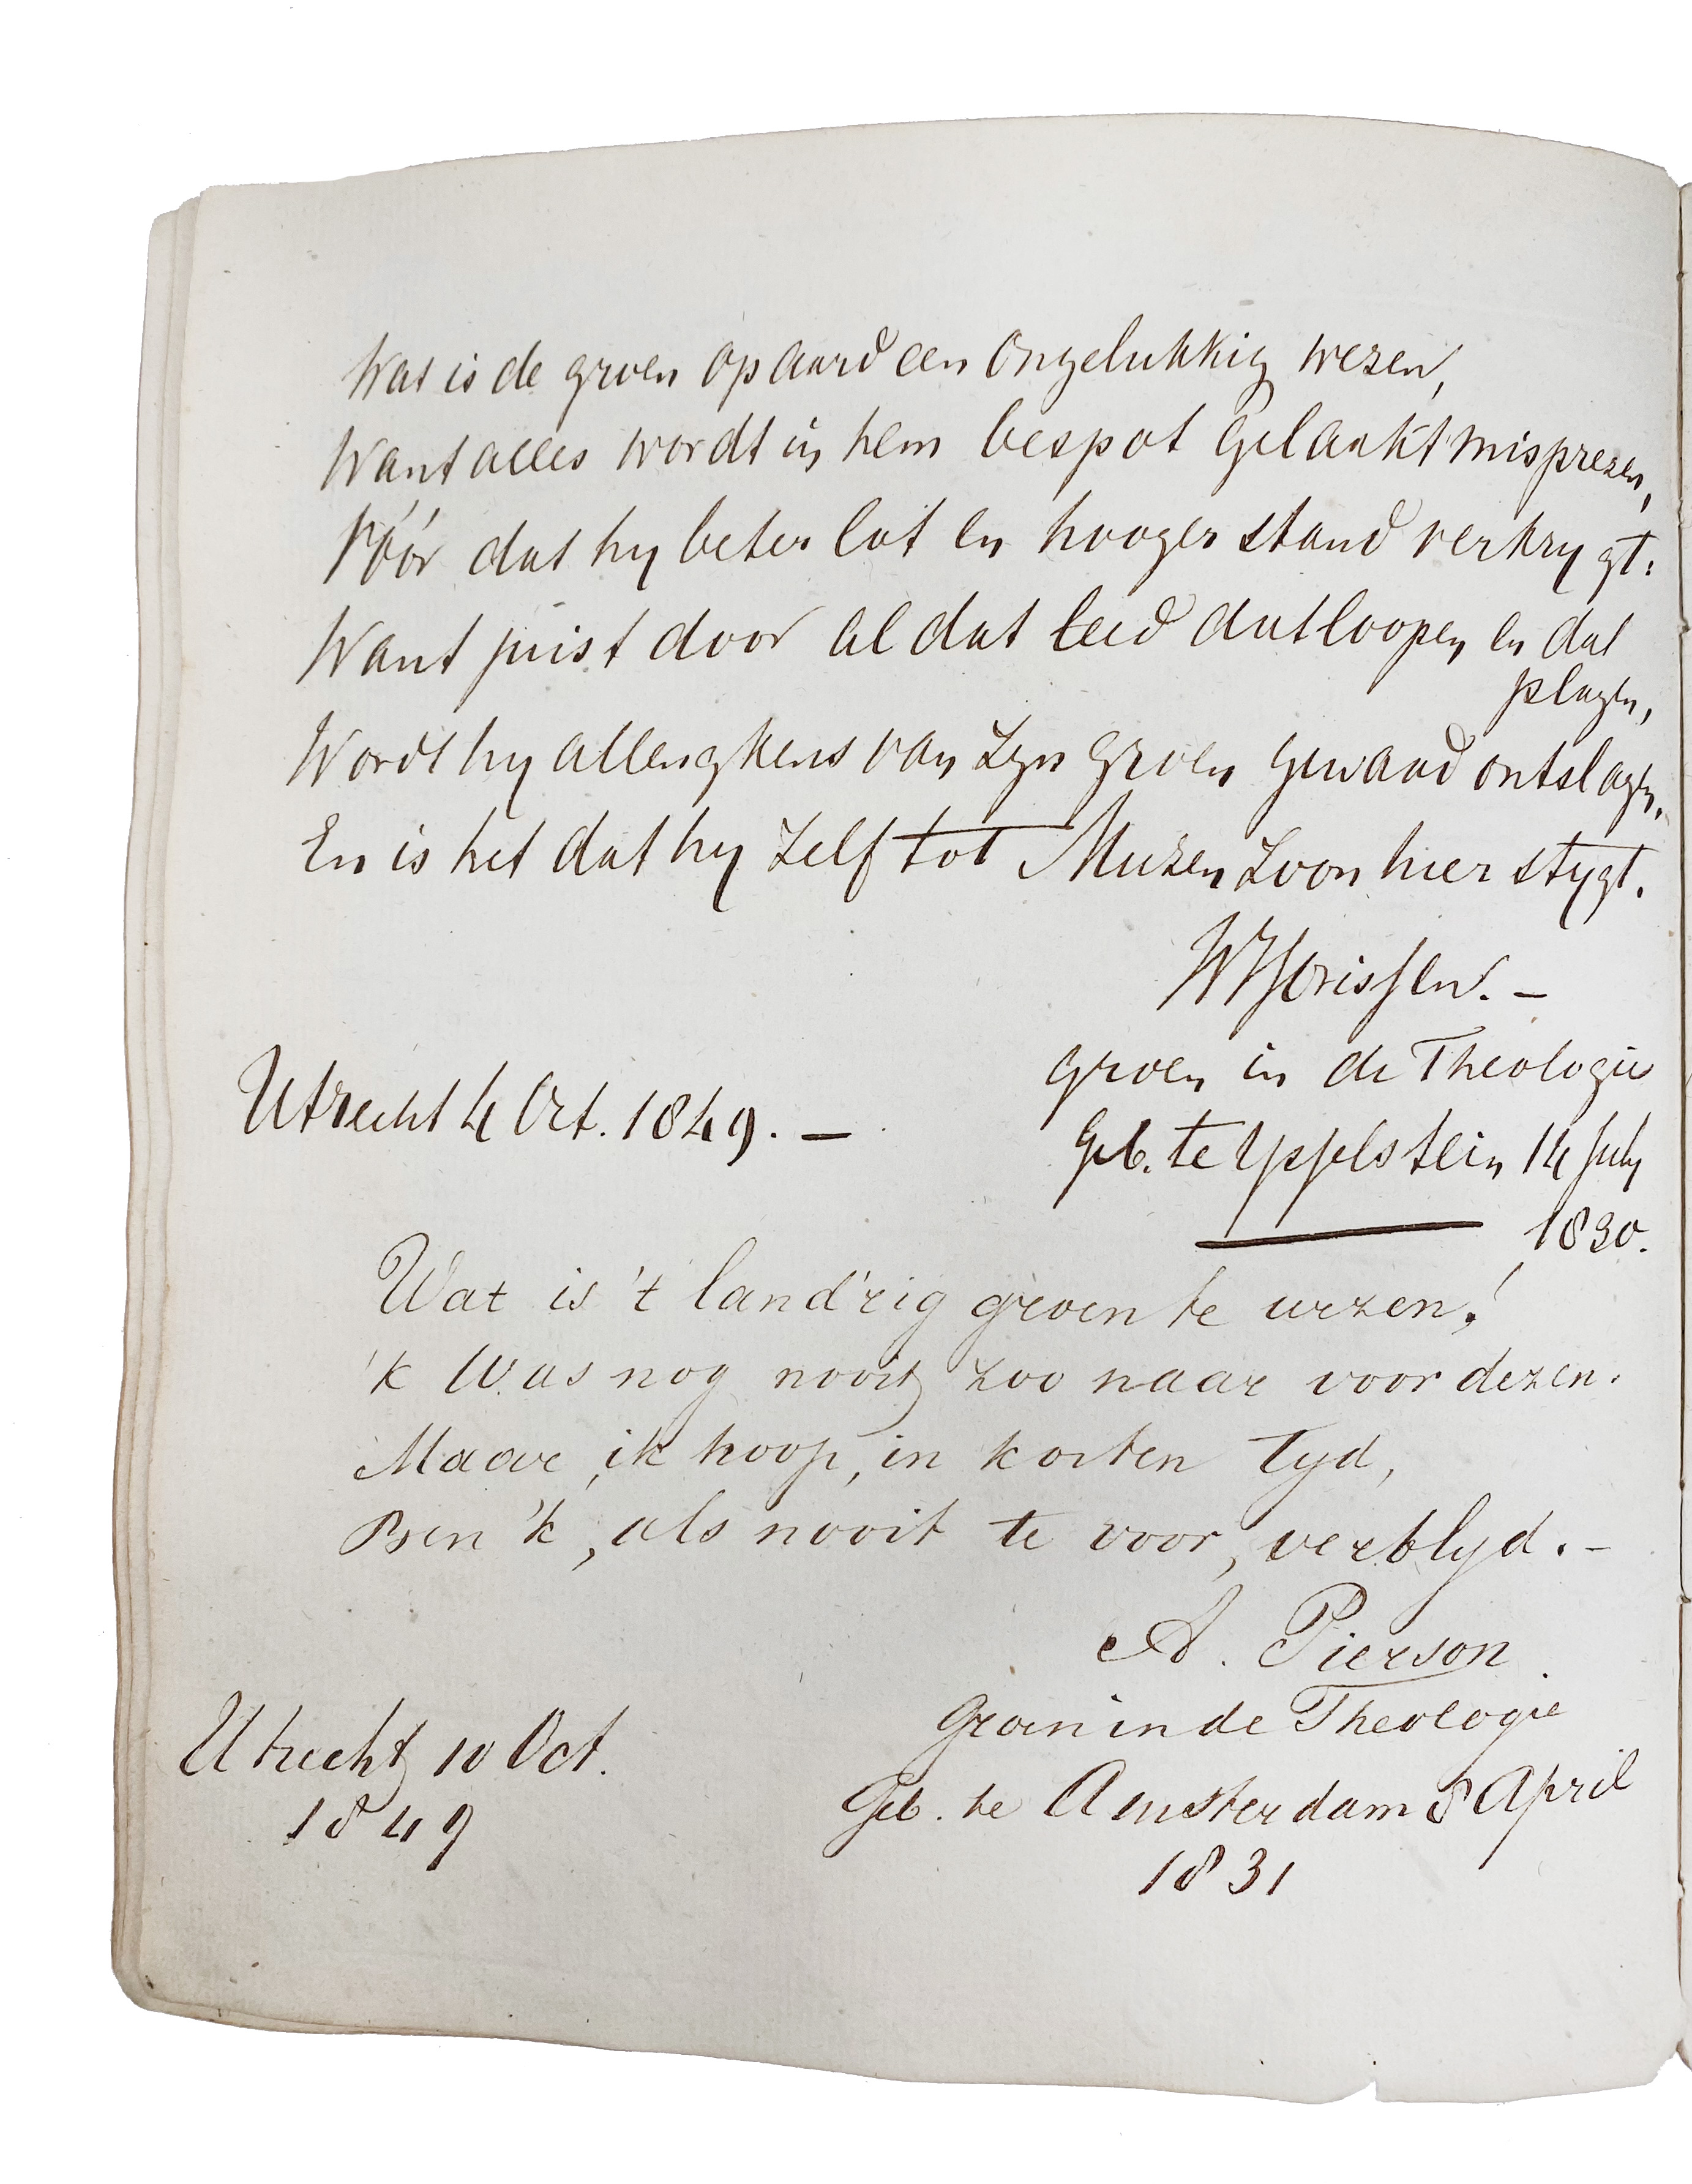 Wat is de groen op aard een ongelukkig wezen,
Want alles wordt in hem bespot gelaakt misprezen,
Vóór dat hy beter lot en hooger stand verkrygt:
Want juist door al dat leid dat loopen en dat
plagen,
Wordt hy allengskens van zyn groen gewaad ontslagen.
En is het dat hy zelf tot Muzen zoon hier stygt.
W Jorissen. —
groen in de Theologie
Utrecht 4 Oct. 1849. —
Geb. te Ysselstein 14 July
1830.
Wat is 't land'rig groen te wezen!
'k Was nog nooit zoo naar voor dezen.
Maar, ik hoop, in korten tyd,
Ben 'k, als nooit te voor, verblyd. —
A. Pierson.
Groen in de Theologie
Utrecht 10 Oct.
1849
Geb. te Amsterdam 8 April
1831